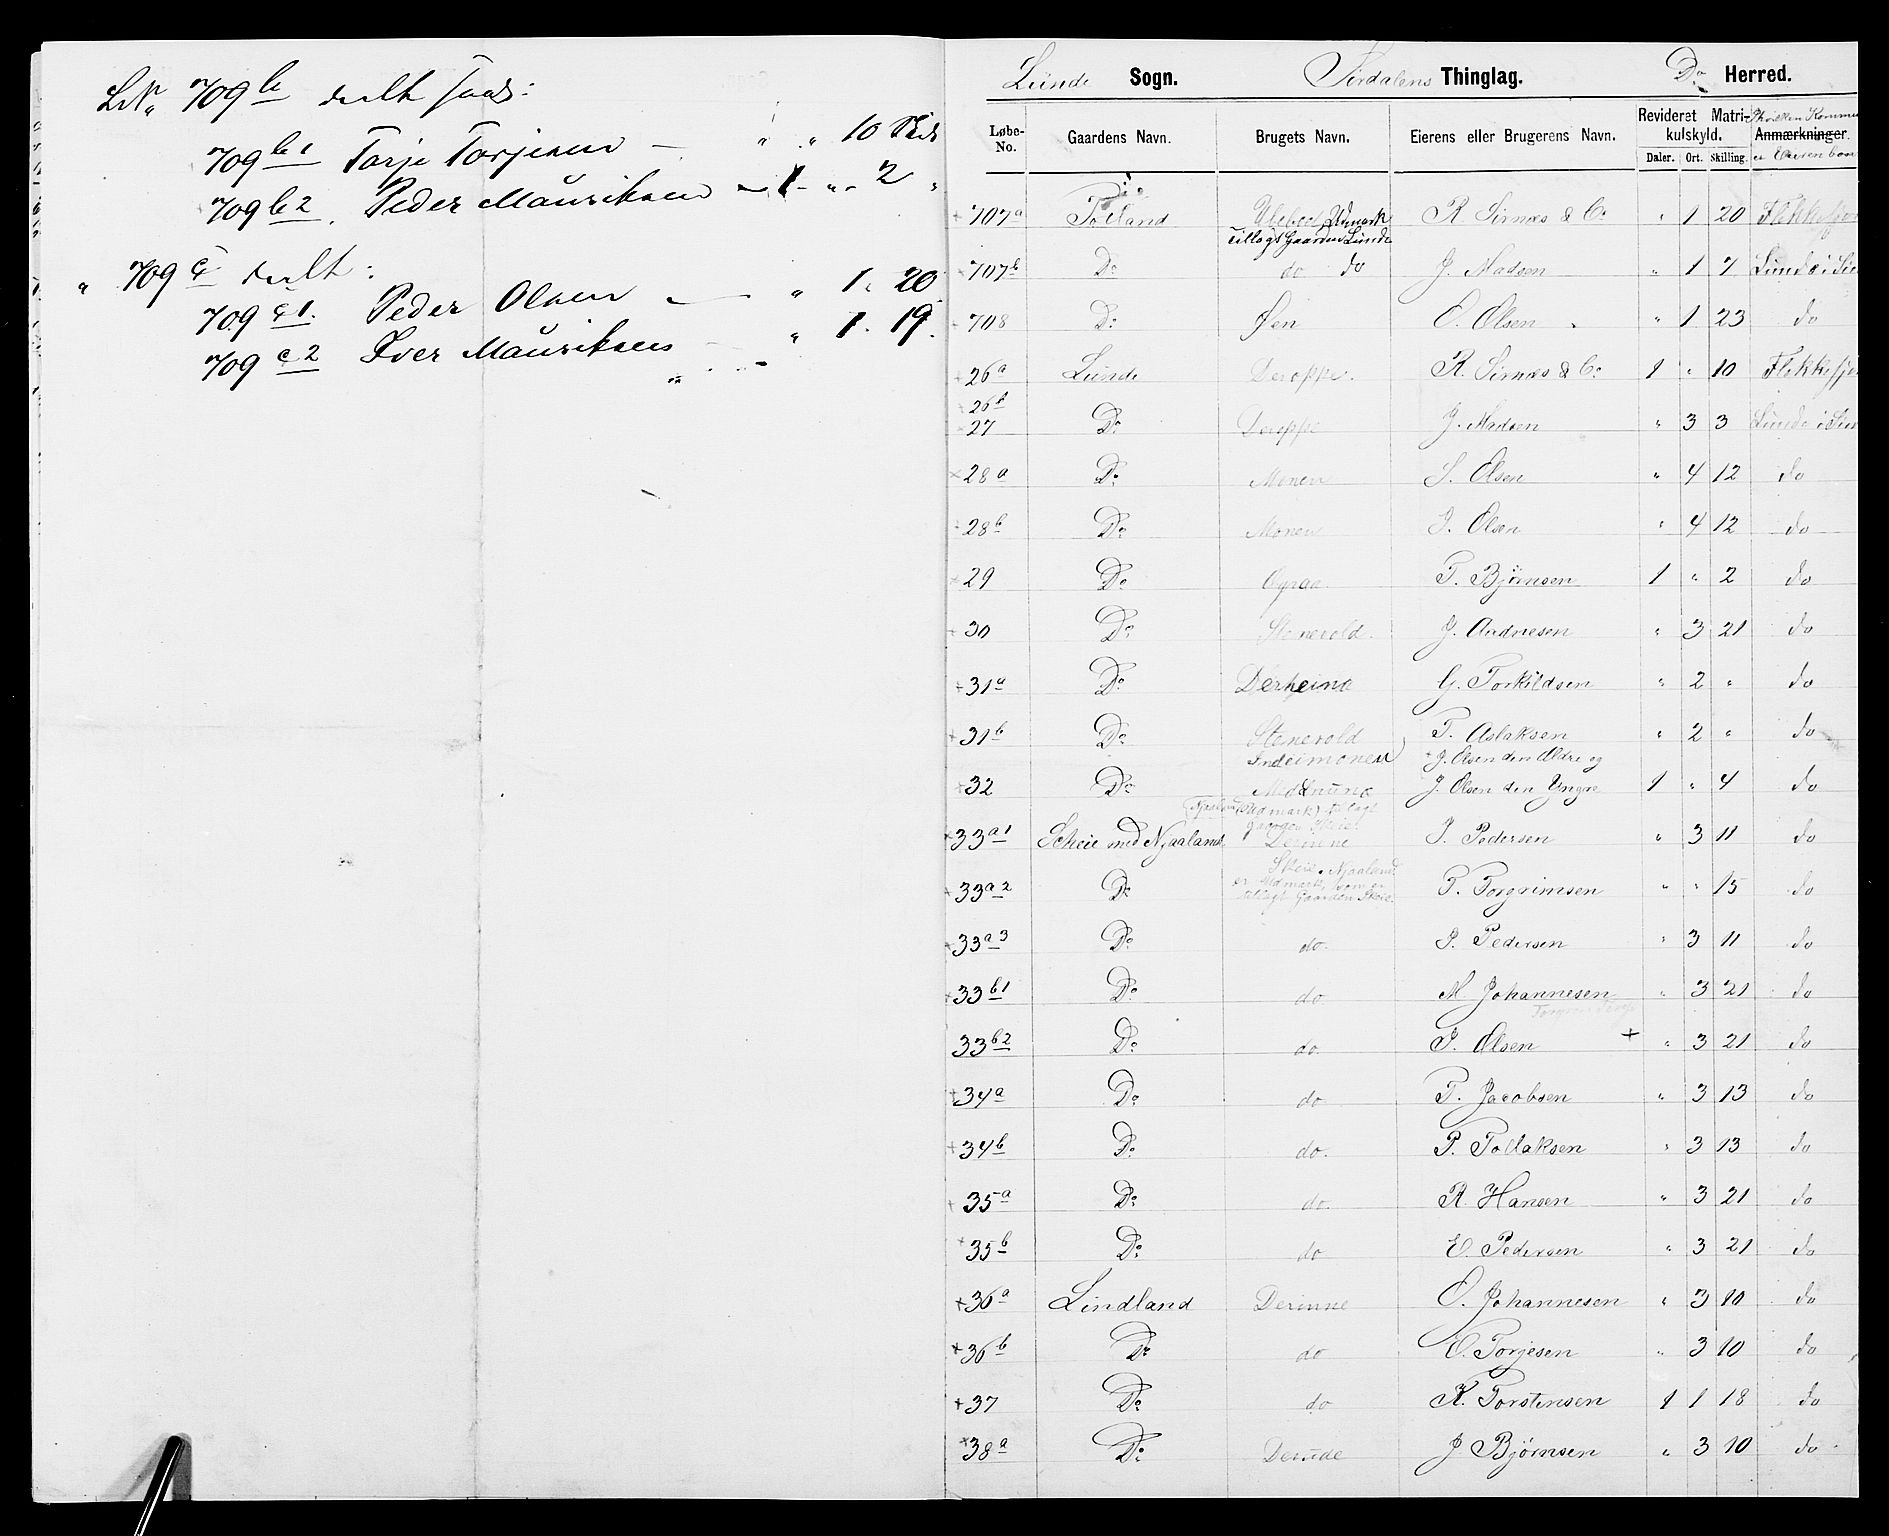 LNr 709 b delt saas:
709 b1 Torje Torjesen — " " 10 Skil
709 b2. Peder Mauriksen — 1 - " - 2 "
" 709 c delt:
709 c1. Peder Olsen — " 1. 20
709 c2 Iver Mauriksen — " 1. 19.
Lunde Sogn. Sirdalens Thinglag. Do Herred.
Løbe-No. Gaardens Navn. Brugets Navn. Eierens eller Brugerens Navn. Revideret Matrikulskyld. Anmærkninger.
Daler. Ort. Skilling.
707a Tolland Udmark R. Sirnæs & Co " 1 20
tillagt Gaarden Lunde
707b Do do do J. Madsen " 1 7
708 Do Øen O. Olsen " 1 23 do
26a Lunde Deroppe. R. Sirnæs & Co 1 " 10
26b
27 Do Deroppe J. Madsen " 3 3
28a Do Monen S. Olsen " 4 12 do
28b Do Monen J. Olsen " 4 12 do
29 Do T. Bjørnsen 1 " 2 do
30 Do Stenevold J. Aadnesen " 3 21 do
31a Do Derheime G. Torkildsen " 2 " do
31b Do Stenevold T. Aslaksen " 2 " do
J. Olsen den Ældre og
32 Do J. Olsen den Yngre 1 " 4 do
33a1 Scheie med Njaaland Derinne P. Pedersen " 3 11 do
Skeie. Njaaland
er Udmark, som er
tillagt Gaarden Skeie.
33a2 Do T. Torgrimsen " " 15 do
33a3 Do do. P. Pedersen " 3 11 do
33b1 Do do M Johannesen " 3 21 do
33b2 Do do. P. Olsen + " 3 21 do
34a Do do T. Jacobsen " 3 13 do
34b Do do. P. Tollaksen " 3 13 do
35a Do do. R. Hansen " 3 21 do
35b Do do E. Pedersen " 3 21 do
36a Lindland Derinne O. Johannesen " 3 10 do
36b Do do O. Torjesen " 3 10 do
37 Do do K. Torstensen 1 1 18 do
38a Do Derude J Bjørnsen " 3 10 do